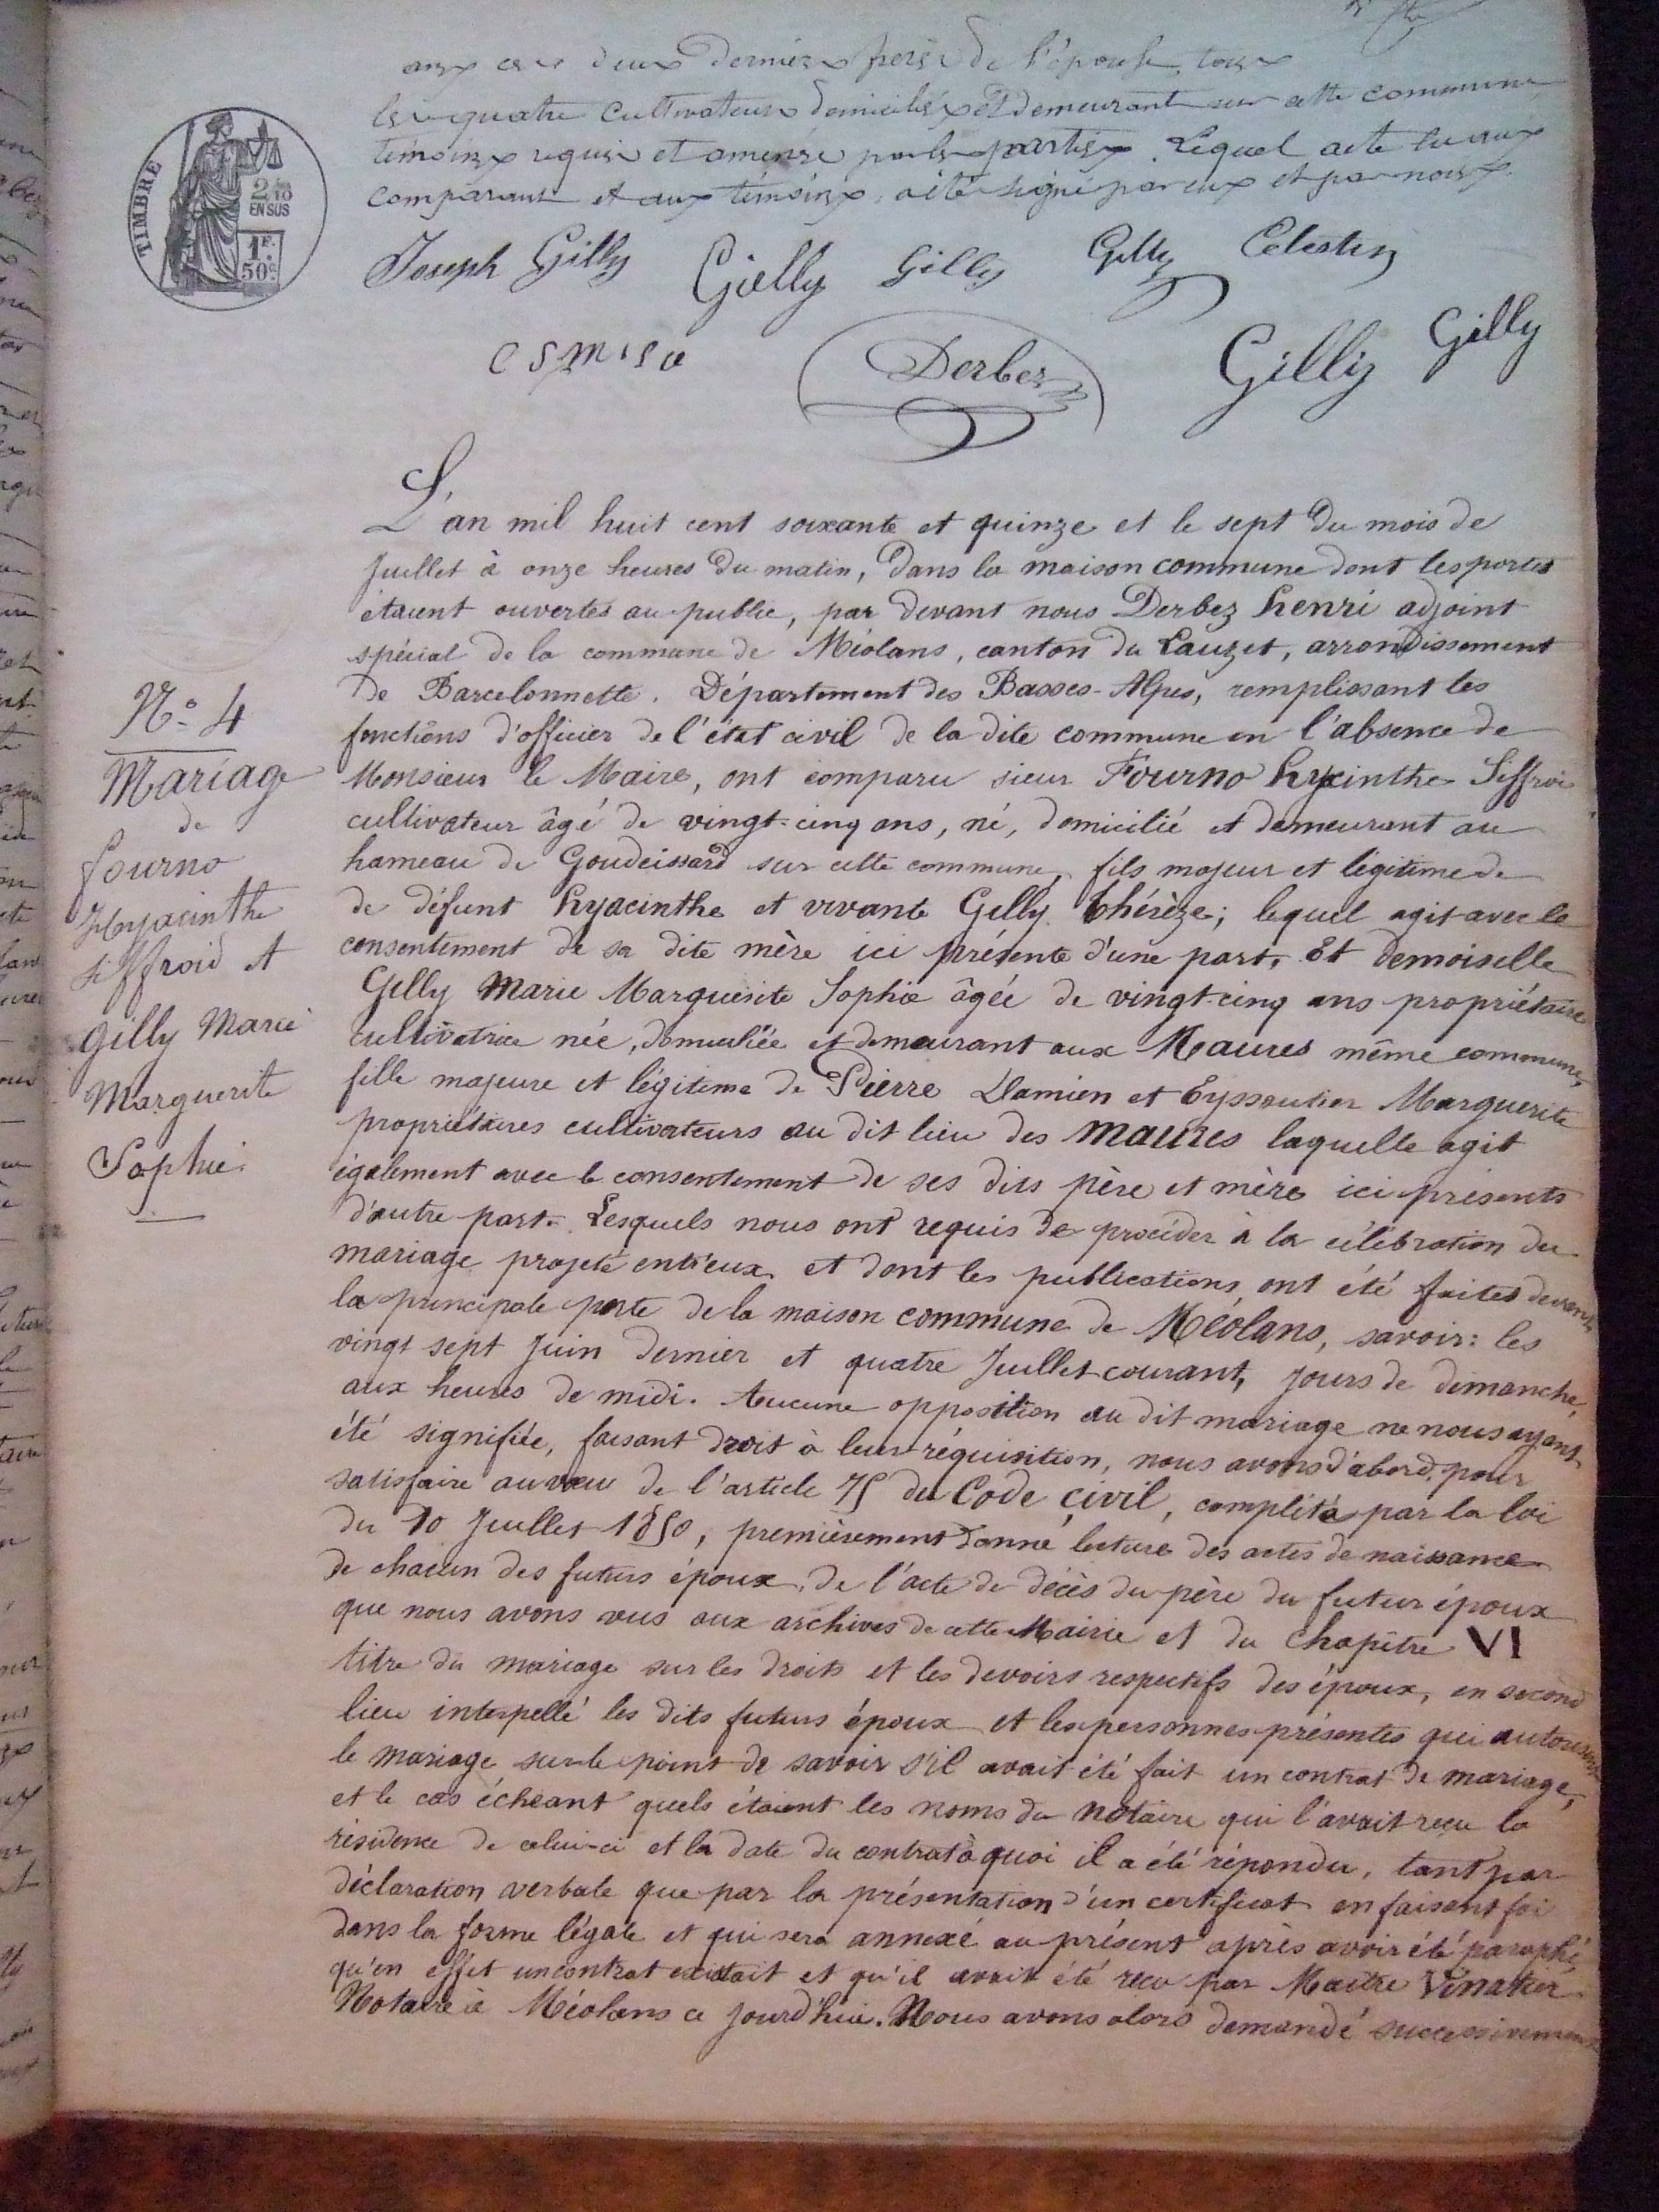 ans ces deux derniers frère de l'épouse, tous
les quatre cultivateurs domiciliés et demeurant sur cette commune
témoins requis et amenés par les parties. Lequel acte lu aux
comparants et aux témoins, a été signé par eux et par nous.
TIMBRE
2/10
EN SUS
1F.
50c
Joseph Gilly Gielly Gilly Gilly Célestin
Derbez Gilly Gilly
L'an mil huit cent soixante et quinze et le sept du mois de
Juillet à onze heures du matin, dans la maison commune dont les portes
étaient ouvertes au public, par devant nous Derbez henri adjoint
spécial de la commune de Méolans, canton du Lauzet, arrondissement
de Barcelonnette, Département des Basses-Alpes, remplissant les
fonctions d'officier de l'état civil de la dite commune en l'absence de
Monsieur le Maire, ont comparu sieur Fourno hyacinthe Siffroi
cultivateur âgé de vingt-cinq ans, né, domicilié et demeurant au
hameau de Goudeissard sur cette commune, fils majeur et légitime de
de défunt hyacinthe et vivante Gilly thérèze; lequel agit avec le
consentement de sa dite mère ici présente d'une part, Et demoiselle
Gilly Marie Marguerite Sophie âgée de vingt-cinq ans propriétaire
cultivatrice née, domiciliée et demeurant aux Maures même commune,
fille majeure et légitime de Pierre Damien et Eyssautier Marguerite
propriétaires cultivateurs au dit lieu des Maures laquelle agit
également avec le consentement de ses dits père et mère ici présents
d'autre part. Lesquels nous ont requis de procéder à la célébration du
mariage projeté entr'eux et dont les publications ont été faites devant
la principale porte de la maison commune de Méolans, savoir: les
vingt sept Juin dernier et quatre Juillet courant, jours de dimanche,
aux heures de midi. Aucune opposition au dit mariage ne nous ayant
été signifiée, faisant droit à leur réquisition, nous avons d'abord, pour
satisfaire au vœu de l'article 75 du Code civil, complété par la loi
du 10 Juillet 1850, premièrement donné lecture des actes de naissance
de chacun des futurs époux, de l'acte de décès du père du futur époux
que nous avons vus aux archives de cette Mairie et du Chapitre VI
titre du mariage sur les droits et les devoirs respectifs des époux, en second
lieu interpellé les dits futurs époux et les personnes présentes qui autorisent
le mariage sur le point de savoir s'il avait été fait un contrat de mariage,
et le cas échéant quels étaient les noms du notaire qui l'avait reçu la
résidence de celui-ci et la date du contrat à quoi il a été répondu, tant par
déclaration verbale que par la présentation d'un certificat en faisant foi
dans la forme légale et qui sera annexé au présent après avoir été paraphé,
qu'en effet un contrat existait et qu'il avait été reçu par Maître Vinatier
Notaire à Méolans ce jourd'hui. Nous avons alors demandé successivement
N° 4
Mariage
de
fourno
Hyacinthe
siffroid et
Gilly Marie
Marguerite
Sophie